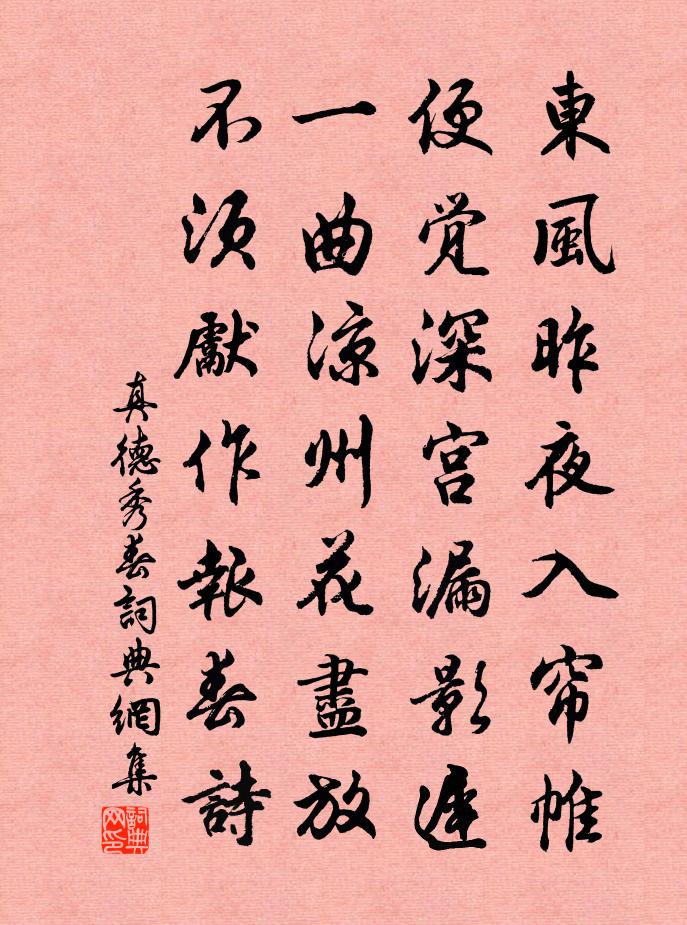 東風昨夜入帘帷
便覚深宫漏影遲
一曲凉州花盡放
不须獻作報春詩
真德秀春詞典網集
詞典网印